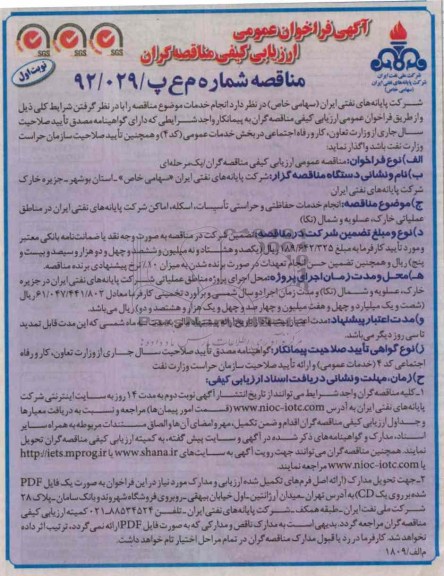 آگهی فراخوان عمومی
ارزیابی کیفی مناقصه گران
نوبت اول
SGS SGS SGS
شرکت ملی نفت ایران
شرکت پایانه‌های نفتی ایران
(سهامی خاص)
مناقصه شماره م ع پ/۹۲/۰۲۹
شرکت پایانه‌های نفتی ایران (سهامی خاص) در نظر دارد انجام خدمات موضوع مناقصه را با در نظر گرفتن شرایط کلی ذیل
و از طریق فراخوان عمومی ارزیابی کیفی مناقصه گران به پیمانکار واجد شرایطی که دارای گواهینامه مصدق تأیید صلاحیت
سال جاری از وزارت تعاون، کار و رفاه اجتماعی در بخش خدمات عمومی (کد۴) و همچنین تأیید صلاحیت سازمان حراست
وزارت نفت باشد واگذار نماید:
الف) نوع فراخوان: مناقصه عمومی ارزیابی کیفی مناقصه گران/یک مرحله‌ای
ب) نام و نشانی دستگاه مناقصه گزار: شرکت پایانه‌های نفتی ایران «سهامی خاص» ـ استان بوشهر ـ جزیره خارک
شرکت پایانه‌های نفتی ایران
ج) موضوع مناقصه: انجام خدمات حفاظتی و حراستی تأسیسات، اسکله، اماکن شرکت پایانه‌های نفتی ایران در مناطق
عملیاتی خارک، عسلویه و شمال (نکا)
د) نوع و مبلغ تضمین شرکت در مناقصه: تضمین شرکت در مناقصه به صورت وجه نقد یا ضمانت‌نامه بانکی معتبر
و مورد تأیید کارفرما به مبلغ ۱۸۹/۶۴۲/۳۲۵ ریال (یکصد و هشتاد و نه میلیون و ششصد و چهل و دو هزار و سیصد و بیست و
پنج) ریال و همچنین تضمین حسن انجام تعهدات در صورت برنده شدن به میزان ۱۰٪ نرخ پیشنهادی برنده مناقصه.
هـ) محل و مدت زمان اجرای پروژه: محل اجرای پروژه مناطق عملیاتی شرکت پایانه‌های نفتی ایران در جزیره
خارک، عسلویه و شمال (نکا) و مدت زمان اجرا دو سال شمسی و برآورد تخمینی کارفرما معادل ۶۱/۰۴۷/۴۴۱/۸۰۲ ریال
(شصت و یک میلیارد و چهل و هفت میلیون و چهارصد و چهل و یک هزار و هشتصد و دو) ریال می‌باشد.
و) مدت اعتبار پیشنهاد: مدت اعتبار پیشنهادها از تاریخ ارائه پیشنهاد مالی به مدت ماه شمسی که این مدت قابل تمدید
تا سی روز دیگر می‌باشد.
ز) نوع گواهی تأیید صلاحیت پیمانکار: گواهینامه مصدق تأیید صلاحیت سال جاری از وزارت تعاون، کار و رفاه
اجتماعی کد ۴ (خدمات عمومی) و ارائه تأیید صلاحیت سازمان حراست وزارت نفت
ح) زمان، مهلت و نشانی دریافت اسناد ارزیابی کیفی:
۱ـ کلیه مناقصه گران واجد شرایط می‌توانند از تاریخ انتشار آگهی نوبت دوم به مدت ۱۴ روز به سایت اینترنتی شرکت
پایانه‌های نفتی ایران به آدرس www.nioc-iotc.com (قسمت امور پیمان‌ها) مراجعه و نسبت به دریافت معیارها
و جداول ارزیابی کیفی مناقصه گران اقدام و ضمن تکمیل، مهر و امضای آن‌ها و الصاق مستندات مربوطه به همراه سایر
اسناد، مدارک و گواهینامه‌های ذکر شده در آگهی و سایت پیش گفته، به کمیته ارزیابی کیفی مناقصه گران تحویل
نمایند. همچنین مناقصه گران می‌توانند جهت رویت آگهی به سایت‌های www.shana.ir یا http://iets.mprog.ir
یا www.nioc-iotc.com مراجعه نمایند.
۲ـ جهت تحویل مدارک (ارائه اصل فرم‌های تکمیل شده ارزیابی و مدارک مورد نیاز در این فراخوان به صورت یک فایل PDF
شده بر روی یک CD) به آدرس تهران ـ میدان آرژانتین ـ اول خیابان بیهقی ـ روبروی فروشگاه شهروند و بانک سامان ـ پلاک ۲۸
شرکت ملی نفت ایران ـ طبقه همکف ـ شرکت پایانه‌های نفتی ایران ـ تلفن ۸۸۵۳۴۵۲۴ـ۰۲۱ کمیته ارزیابی کیفی
مناقصه گران مراجعه گردد. بدیهی است به مدارک ناقص و مدارکی که به صورت فایل PDF ارائه نمی‌گردد، ترتیب اثر داده
نخواهد شد. کارفرما در رد یا قبول مدارک مناقصه گران در تمام مراحل اختیار تام خواهد داشت.
م الف/۱۸۰۹